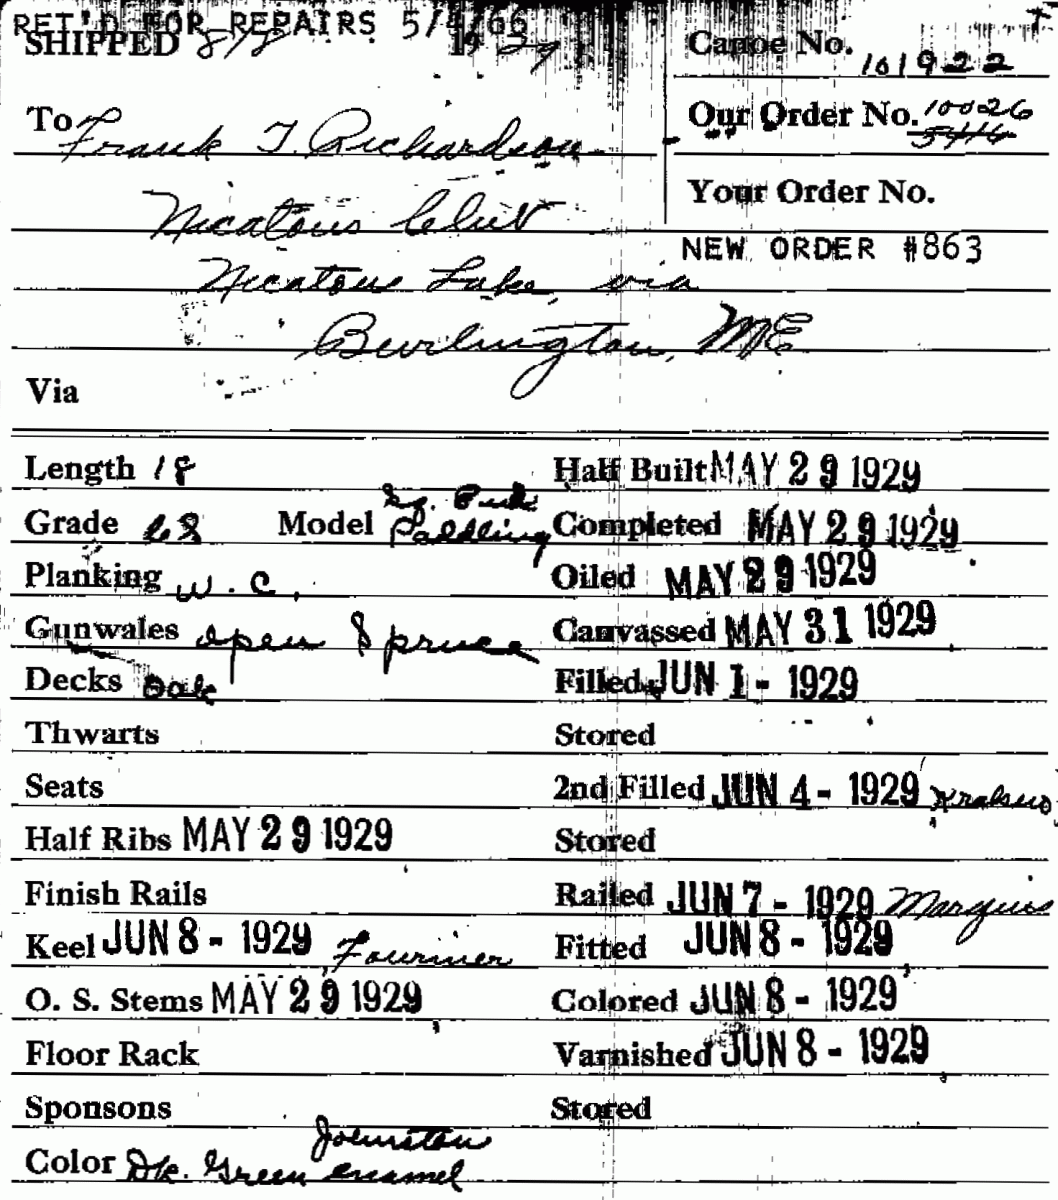 RET'D FOR REPAIRS 5/4/66
SHIPPED 8/8 1929
Canoe No. 101922
To Frank T. Richardson
Our Order No. 10026
5416
Nicatous Club
Your Order No.
NEW ORDER #863
Nicatous Lake, via
Burlington, ME
Via
Length 18 Half Built MAY 29 1929
Grade CS Model Sq. Ends Paddling Completed MAY 29 1929
Planking W.C. Oiled MAY 29 1929
Gunwales open Spruce Canvassed MAY 31 1929
Decks Oak Filled JUN 1 - 1929
Thwarts Stored
Seats 2nd Filled JUN 4 - 1929
Half Ribs MAY 29 1929 Stored
Finish Rails Railed JUN 7 - 1929 Marquis
Keel JUN 8 - 1929 Fournier Fitted JUN 8 - 1929
O. S. Stems MAY 29 1929 Colored JUN 8 - 1929
Floor Rack Varnished JUN 8 - 1929
Sponsons Stored
Johnston
Color Dk. Green enamel